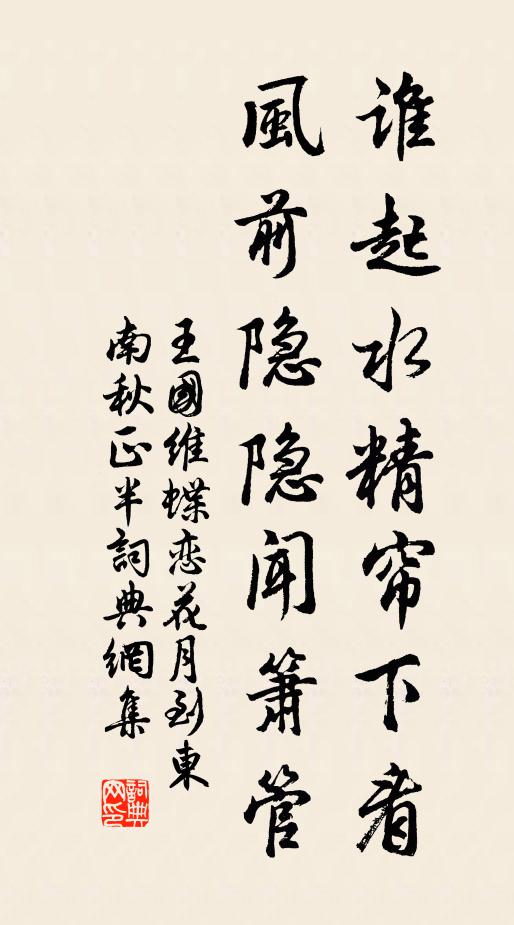 誰起水精帘下看
風前隐隐闻簫管
王國維蝶恋花月到東
南秋正半詞典網集
詞典网印